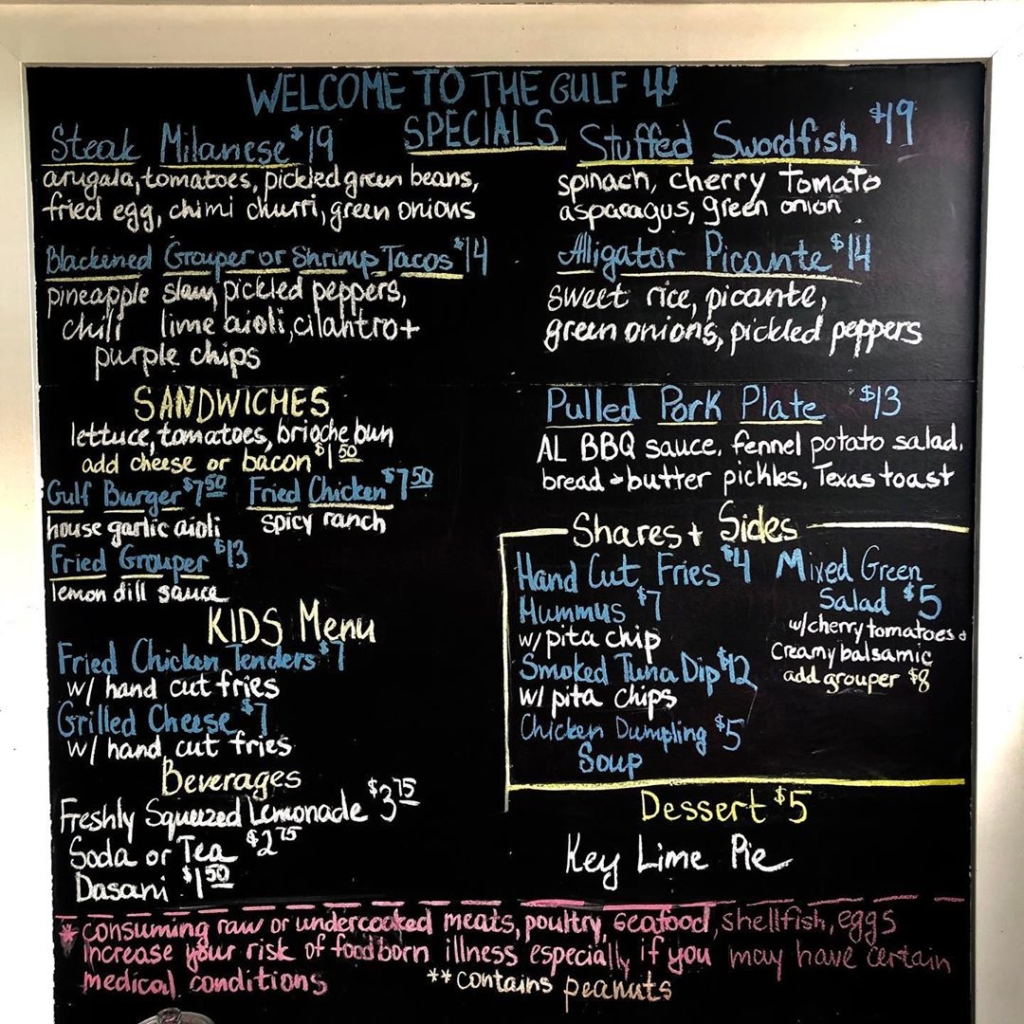 WELCOME TO THE GULF
SPECIALS
Steak Milanese $19
arugala, tomatoes, pickled green beans,
fried egg, chimi churri, green onions
Blackened Grouper or Shrimp Tacos $14
pineapple slaw, pickled peppers,
chili lime aioli, cilantro +
purple chips
SANDWICHES
lettuce, tomatoes, brioche bun
add cheese or bacon $1.50
Gulf Burger $7.50 Fried Chicken $7.50
house garlic aioli spicy ranch
Fried Grouper $13
lemon dill sauce
KIDS Menu
Fried Chicken Tenders $7
w/ hand cut fries
Grilled Cheese $7
w/ hand cut fries
Beverages
Freshly Squeezed Lemonade $3.75
Soda or Tea $2.75
Dasani $1.50
Stuffed Swordfish $19
spinach, cherry tomato
asparagus, green onion
Alligator Picante $14
sweet rice, picante,
green onions, pickled peppers
Pulled Pork Plate $13
AL BBQ sauce, fennel potato salad,
bread + butter pickles, Texas toast
Shares + Sides
Hand Cut Fries $4
Hummus $7
w/ pita chip
Smoked Tuna Dip $12
w/ pita chips
Chicken Dumpling $5
Soup
Mixed Green
Salad $5
w/ cherry tomatoes +
Creamy balsamic
add grouper $8
Dessert $5
Key Lime Pie
* consuming raw or undercooked meats, poultry, seafood, shellfish, eggs
increase your risk of foodborn illness especially if you may have certain
medical conditions **contains peanuts